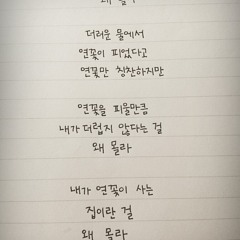 왜 몰라
더러운 물에서
연꽃이 피었다고
연꽃만 칭찬하지만
연꽃을 피울만큼
내가 더럽지 않다는 걸
왜 몰라
내가 연꽃이 사는
집이란 걸
왜 몰라